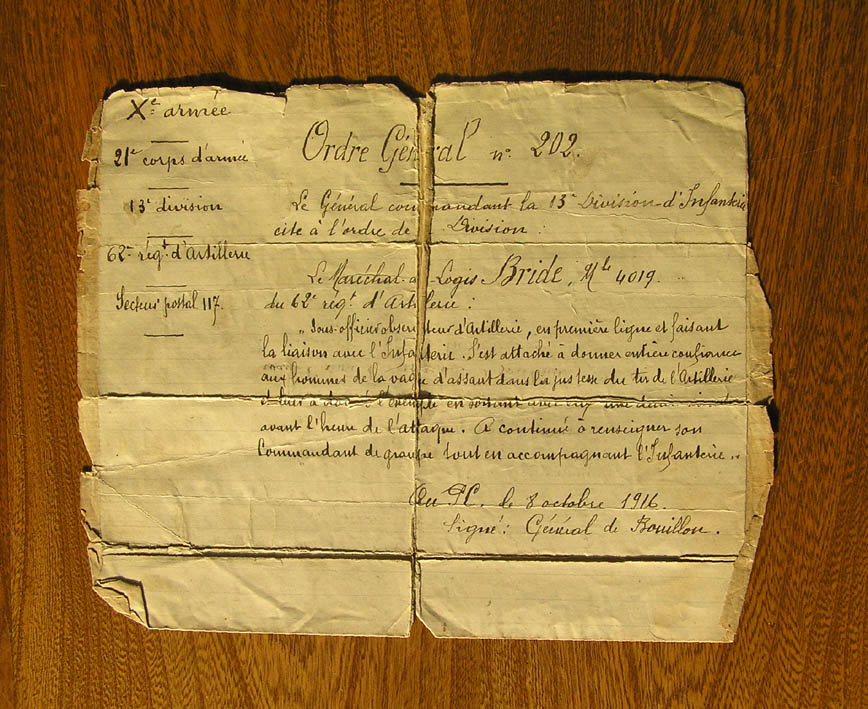 Xe armée
21e corps d'armée
13e division
62e régt d'Artillerie
Secteur postal 117.
Ordre Général no 202.
Le Général commandant la 13e Division d'Infanterie
cite à l'ordre de Division :
Le Maréchal d Logis Bride, Mle 4019.
du 62e régt d'Artillerie :
„ Sous-officier observateur d'Artillerie, en première ligne et faisant
la liaison avec l'Infanterie. S'est attaché à donner entière confiance
aux hommes de la vague d'assaut dans la justesse du tir de l'Artillerie
et leur a donné l'exemple en sortant
avant l'heure de l'attaque. A continué à renseigner son
Commandant de groupe tout en accompagnant l'Infanterie. „
Au PC. le 8 octobre 1916.
Signé : Général de Bouillon.